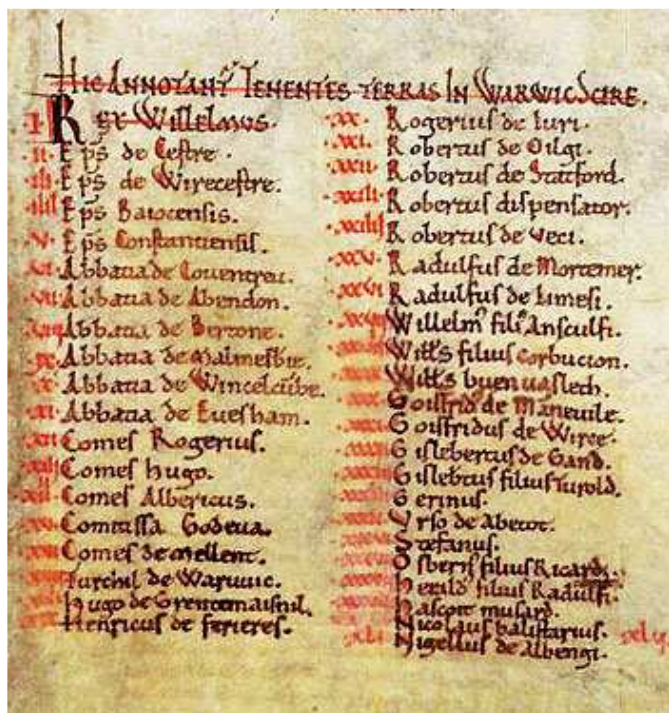 HIC ANNOTANT͛ TENENTES TERRAS IN WARWICSCIRE.
.I. REX WILLELMVS.
.II. Ep̃s de Cestre.
.III. Ep̃s de Wirecestre.
.IIII. Ep̃s Baiocensis.
.V. Ep̃s Constantiensis.
.VI. Abbatia de Couentreu.
.VII. Abbatia de Abendon.
.VIII. Abbatia de Bertone.
.IX. Abbatia de Malmesb̃ie.
.X. Abbatia de Wincelcũbe.
.XI. Abbatia de Euesham.
.XII. Comes Rogerius.
.XIII. Comes hugo.
.XIIII. Comes Albericus.
.XV. Comitissa Godeua.
.XVI. Comes de mellent.
Turchil de Waruuic.
hugo de Grentemaisnil.
henricus de fereres.
.XX. Rogerius de iuri.
.XXI. Robertus de Oilgi.
.XXII. Robertus de Statford.
.XXIII. Robertus dispensator.
.XXIIII. Robertus de veci.
.XXV. Radulfus de Mortemer.
.XXVI. Radulfus de limesi.
Willelm͛ fili͛ Ansculfi.
Will̃s filius corbucion.
Will̃s buenuasleth.
Goisfrid͛ de Maneuile.
Goisfridus de Wirce.
Gislebertus de Gand.
Gisleb̃tus filius turold.
Gerinus.
Vrso de Abetot.
Stefanus.
Osbern͛ filius Ricardi.
herild͛ filius Radulfi.
hascoit musard.
Nicolaus balistarius.
.XLI. Nigellus de Albengi.